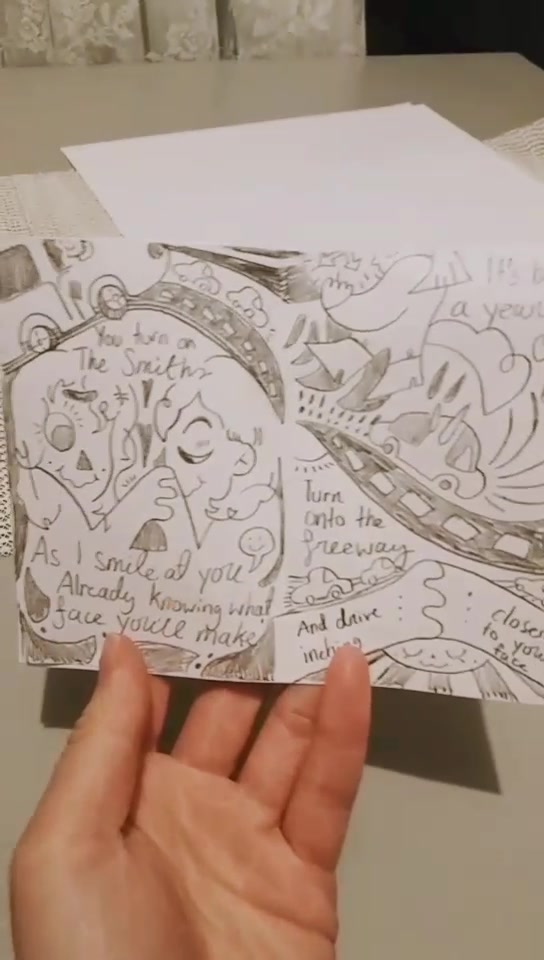 You turn on
The Smiths
As I smile at you
Already knowing what
face you'll make
It's b
a year
Turn
onto the
freeway
And drive
inching
closer
to you
face